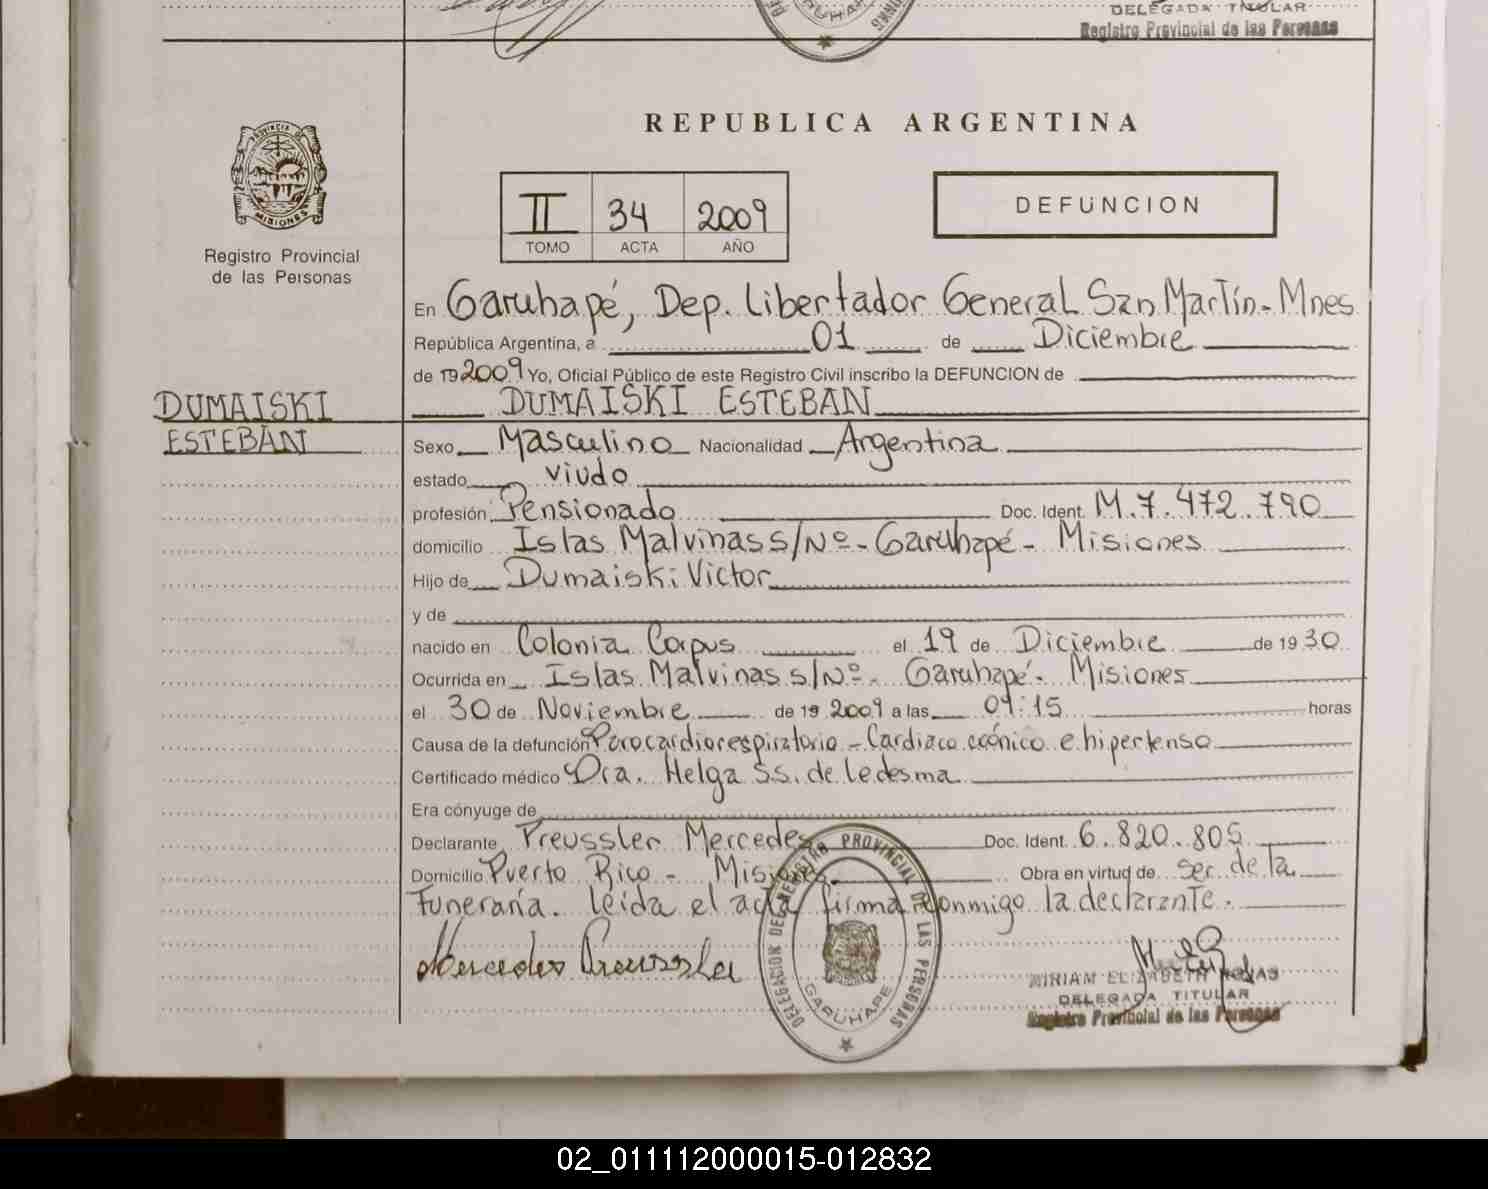 DELEGADA TITULAR
Registro Provincial de las Personas
REPUBLICA ARGENTINA
PROVINCIA DE
MISIONES
II 34 2009
TOMO ACTA AÑO
DEFUNCION
Registro Provincial
de las Personas
En Garuhapé, Dep. Libertador General San Martín - Mnes
República Argentina, a 01 de Diciembre
de 19 2009 Yo, Oficial Público de este Registro Civil inscribo la DEFUNCION de
DUMAISKI ESTEBAN
DUMAISKI
ESTEBAN
Sexo Masculino Nacionalidad Argentina
estado viudo
profesión Pensionado Doc. Ident. M.7.472.790
domicilio Islas Malvinas S/Nº - Garuhapé - Misiones
Hijo de Dumaiski Victor
y de
nacido en Colonia Corpus el 19 de Diciembre de 19 30
Ocurrida en Islas Malvinas s/Nº - Garuhapé - Misiones
el 30 de Noviembre de 19 2009 a las 09:15 horas
Causa de la defunción Parocardiorespiratorio - Cardiaco crónico e hipertenso
Certificado médico Dra. Helga S.S. de Ledesma
Era cónyuge de
Declarante Preussler Mercedes Doc. Ident. 6.820.805
Domicilio Puerto Rico - Misiones Obra en virtud de ser de la
Funeraria. leida el acta firma conmigo la declarante.
Mercedes Preussler
DELEGACION DEL REGISTRO PROVINCIAL DE LAS PERSONAS
GARUHAPE
MIRIAM ELIZABETH ROJAS
DELEGADA TITULAR
Registro Provincial de las Personas
02_011112000015-012832